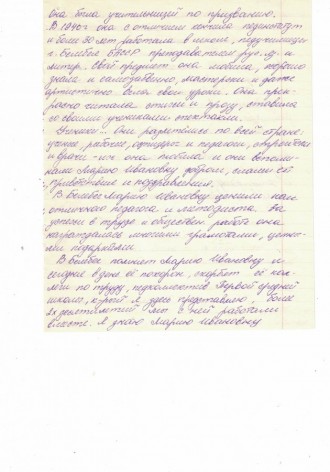 Она была учительницей по призванию.
В 1940 г. она с отличием кончила пединститут
и более 30 лет работала в школе, педучилище
г. Бельцы преподавателем рус. яз. и
литер. Свой предмет она любила, хорошо
знала и самозабвенно, мастерски и даже
артистично вела свои уроки. Они прек-
расно читала стихи и прозу, ставила
со своими учениками спектакли.
Ученики... Они разлетелись по всей стране
ученые, рабочие, офицеры и педагоги,
и врачи - их она любила и они вспоми-
нали Марию Ивановну добром, слали ей
приветствия и поздравления.
В Бельцах Марию Ивановну ценили как
отличного педагога и методиста. За
успехи в труде и обществен. работе она
награждалась многими грамотами, ценны-
ми подарками.
В Бельцах помнят Марию Ивановну и
сегодня в день её похорон, скорбят её кол-
леги по труду, педколлектив Первой средней
школы, к-рый я здесь представляю. Более
2х десятилетий мы с ней работали
вместе. Я знаю Марию Ивановну